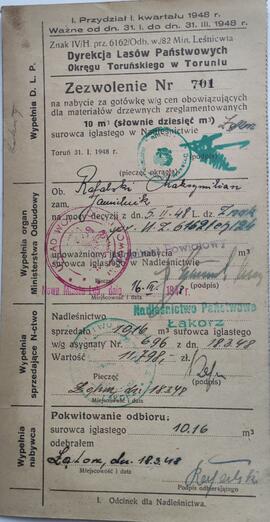 I. Przydział I. kwartału 1948 r.
Ważne od dn. 31. I. do dn. 31. III. 1948 r.
Znak IV/H. prz. 6162/Odh. w./82 Min. Leśnictwa
Dyrekcja Lasów Państwowych
Okręgu Toruńskiego w Toruniu
Wypełnia D. L. P.
Zezwolenie Nr 701
na nabycie za gotówkę w/g cen obowiązujących
dla materiałów drzewnych zreglamentowanych
10 m³ (słownie dziesięć m³)
surowca iglastego w Nadleśnictwie
Toruń 31. I. 1948 r.
(pieczęć okrągła)
Wypełnia organ Ministerstwa Odbudowy
Ob. Rafalski Maksymilian
zam.
na mocy decyzji z dn. 5.II.48 l. dz. Znak
upoważniony jest do nabycia
surowca iglastego w Nadleśnictwie
Nowe Miasto Lub., dnia 16.III. 194
Miejscowość i data
(podpis)
Nadleśnictwo Państwowe
Łąkorz
Wypełnia sprzedające N-ctwo
Nadleśnictwo
sprzedało 10,16 m³ surowca iglastego
w/g asygnaty Nr 696 z dn. 18.3.48
Wartość 11,798.- zł.
Pieczęć
(podpis)
dn. 18.3.48
Miejscowość i data
Wypełnia nabywca
Pokwitowanie odbioru:
surowca iglastego 10.16 m³
odebrałem
dn. 18.3.48
Miejscowość i data
Rafalski
Podpis odbierającego
I. Odcinek dla Nadleśnictwa.